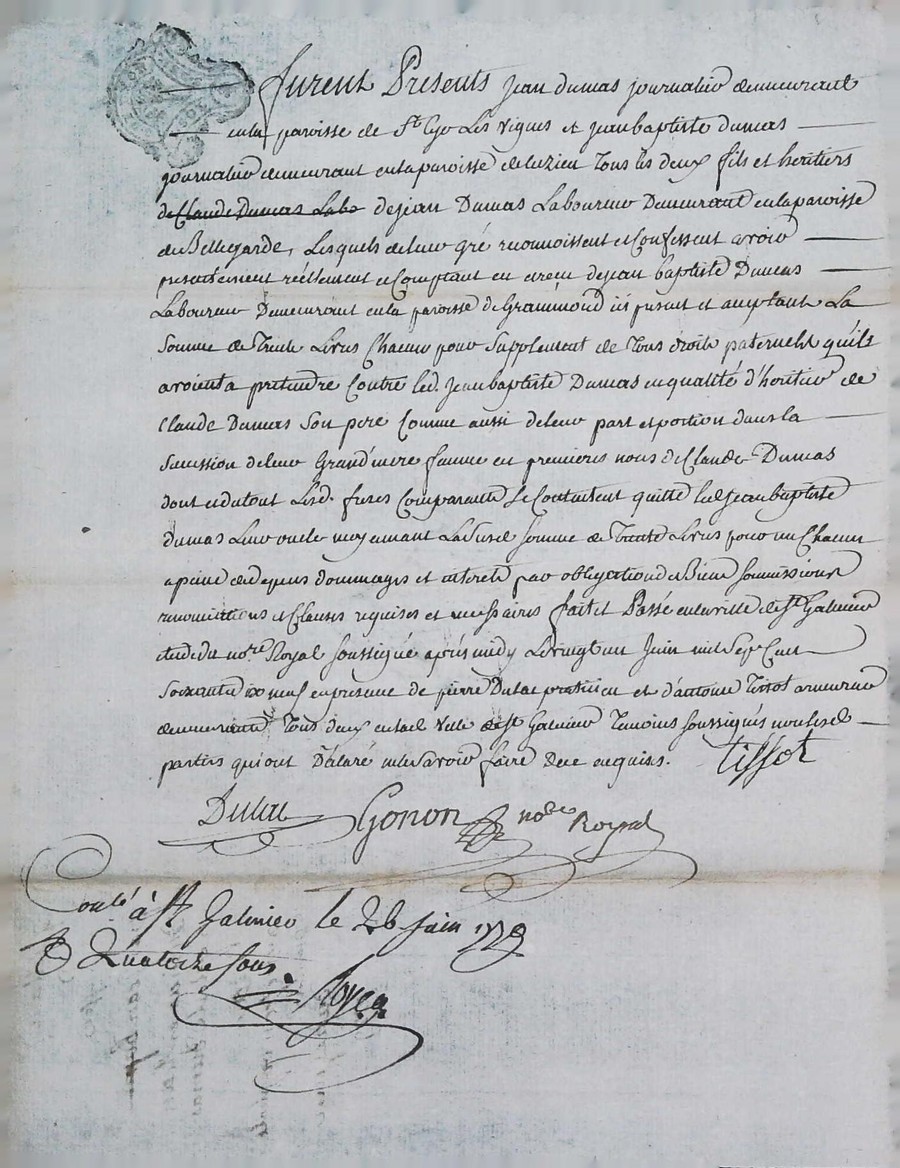 furent Presents Jean Dumas journalier demeurant
en la paroisse de St Cyr Les Vignes et jean baptiste Dumas
journalier demeurant en la paroisse de Tous les deux fils et heritiers
de Claude Dumas Labo de jean Dumas Laboureur Demeurant en la paroisse
de Bellegarde, Lesquels de leur gré reconnoissent et Confessent avoir
presentement réellement et Comptant eu et reçu de jean baptiste Dumas
Laboureur Demeurant en la paroisse de Grammond ici present et acceptant La
Somme de Trente Livres Chacun pour Supplement de Tous droits paternels qu'ils
avoient a pretendre Contre led. Jean baptiste Dumas en qualité d'heritier de
Claude Dumas Son pere Comme aussi de leur part et portion dans la
Succession de leur Grand'mere femme en premieres noces de Claude Dumas
dont et du tout Lesd. freres Comparants Se Contentent quitte led jean baptiste
Dumas Leur oncle moyennant La Susd somme de Trente Livres pour un Chacun
a peine de depens dommages et interets par obligation de Biens Soumissions
renonciations et Clauses requises et necessaires fait et Passé en la ville de St Galmier
etude du nore Royal Soussigné après midy Le vingt un Juin mil Sept Cent
Soixante dix neuf en presence de pierre Dulac praticien et d'antoine Tissot armurier
demeurants Tous deux en lad Ville de St Galmier Temoins Soussignés non lesd
parties qui ont Déclaré ne le Savoir faire de ce enquises. Tissot
Dulac Gonon nore Royal
Conlé à St Galmier le 26 Juin 1779
R Quatorze Sous.